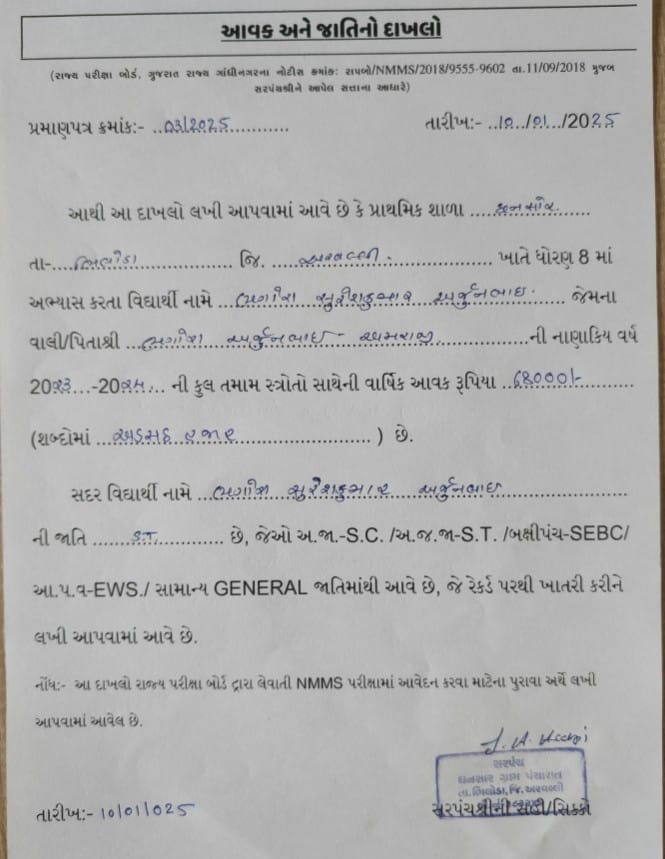 આવક અને જાતિનો દાખલો
(રાજ્ય પરીક્ષા બોર્ડ, ગુજરાત રાજ્ય ગાંધીનગરના નોટીસ ક્રમાંક: રાપબો/NMMS/2018/9555-9602 તા.11/09/2018 મુજબ
સરપંચશ્રીને આપેલ સત્તાના આધારે)
પ્રમાણપત્ર ક્રમાંક:- ..03/2025............ તારીખ:- ..10../01.../2025
આથી આ દાખલો લખી આપવામાં આવે છે કે પ્રાથમિક શાળા ....ધનસોર......
તા-....ભિલોડા.............. જિ. .....અરવલ્લી.................. ખાતે ધોરણ 8 માં
અભ્યાસ કરતા વિદ્યાર્થી નામે ...ભગોરા સુરેશકુમાર અર્જુનભાઇ...... જેમના
વાલી/પિતાશ્રી ...ભગોરા અર્જુનભાઇ અમરાજી...............ની નાણાકિય વર્ષ
2023...-2024... ની કુલ તમામ સ્ત્રોતો સાથેની વાર્ષિક આવક રૂપિયા ..68000/-..........
(શબ્દોમાં ...અડસઠ હજાર......................... ) છે.
સદર વિદ્યાર્થી નામે ...ભગોરા સુરેશકુમાર અર્જુનભાઇ......................
ની જાતિ .......S.T............ છે, જેઓ અ.જા.-S.C. /અ.જ.જા-S.T. /બક્ષીપંચ-SEBC/
આ.પ.વ-EWS./ સામાન્ય GENERAL જાતિમાંથી આવે છે, જે રેકર્ડ પરથી ખાતરી કરીને
લખી આપવામાં આવે છે.
નોંધ:- આ દાખલો રાજ્ય પરીક્ષા બોર્ડ દ્વારા લેવાતી NMMS પરીક્ષામાં આવેદન કરવા માટેના પુરાવા અર્થે લખી
આપવામાં આવેલ છે.
સરપંચ
ધનસોર ગ્રામ પંચાયત
તા.ભિલોડા, જિ.અરવલ્લી
તારીખ:- 10/01/025 સરપંચશ્રીની સહી/સિક્કો